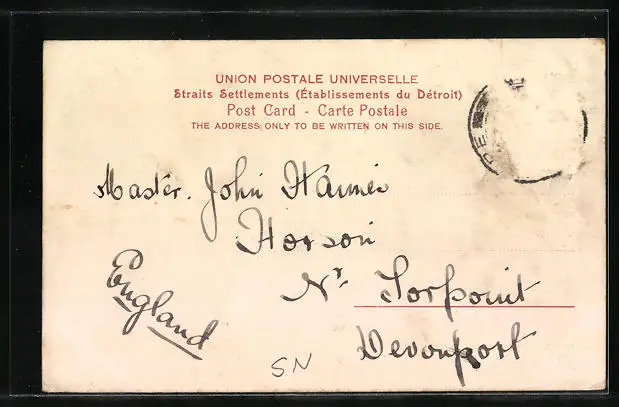 UNION POSTALE UNIVERSELLE
Straits Settlements (Établissements du Détroit)
Post Card - Carte Postale
THE ADDRESS ONLY TO BE WRITTEN ON THIS SIDE.
PE
Master. John
Horson
Nr. Torpoint
Devonport
England
SN